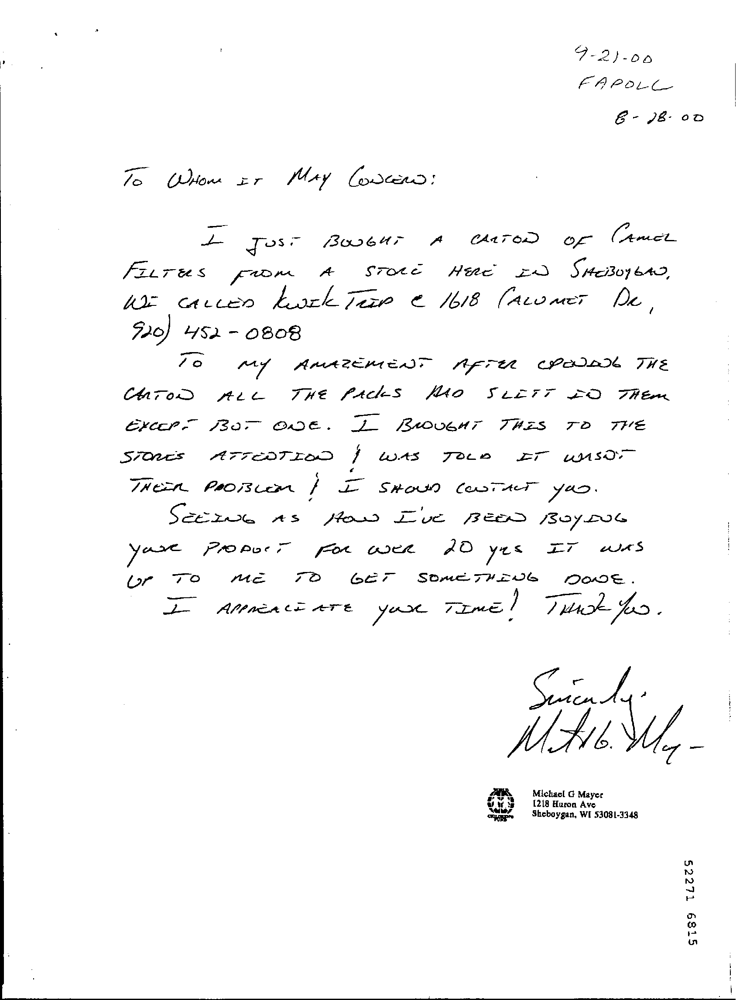 9-21-00
FAPOLL
8-28-00
TO WHOM IT MAY CONCERN:
I JUST BOUGHT A CARTON OF CAMEL
FILTERS FROM A STORE HERE IN SHEBOYGAN,
WI CALLED KWIK TRIP @ 1618 CALUMET DR,
920) 452-0808
TO MY AMAZEMENT AFTER OPENING THE
CARTON ALL THE PACKS HAD SLITT IN THEM
EXCEPT BUT ONE. I BROUGHT THIS TO THE
STORES ATTENTION! WAS TOLD IT WASN'T
THEIR PROBLEM! I SHOULD CONTACT YOU.
SEEING AS HOW I'VE BEEN BUYING
YOUR PRODUCT FOR OVER 20 YRS IT WAS
UP TO ME TO GET SOMETHING DONE.
I APPRECIATE YOUR TIME! THANK YOU.
Sincerely,
Michael G Mayer
1218 Huron Ave
Sheboygan, WI 53081-3348
52271 6815